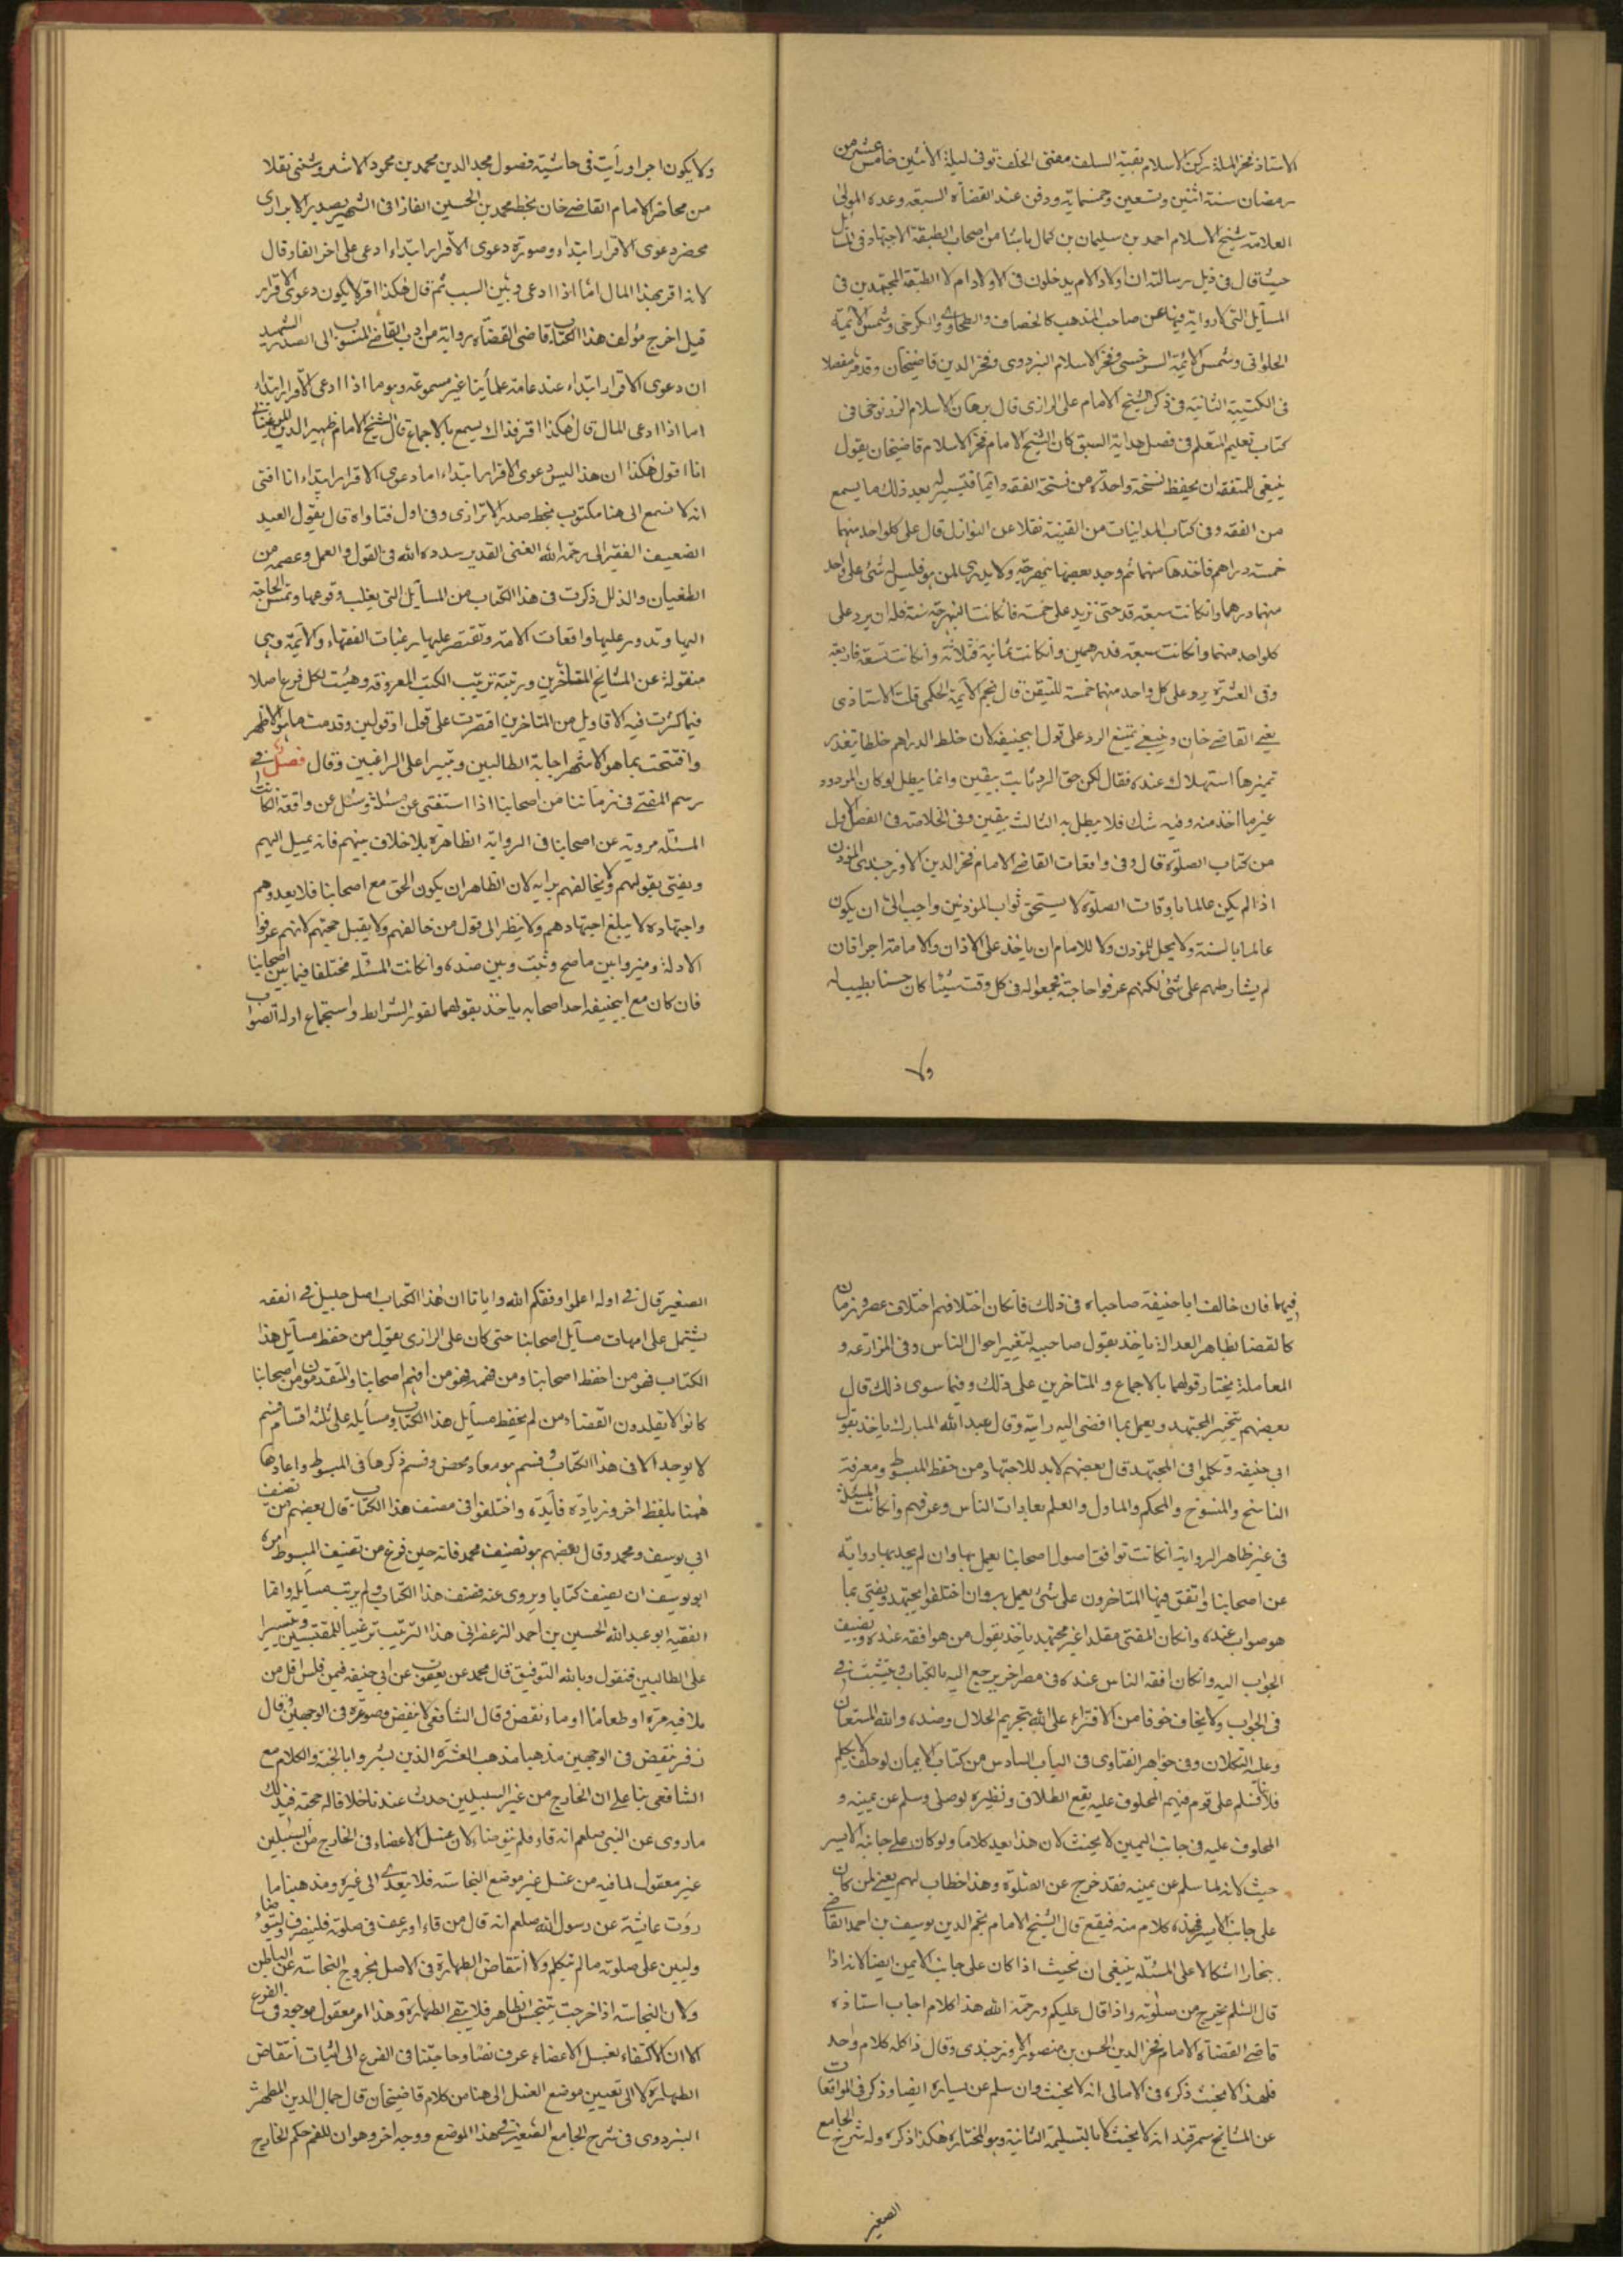 الاستاذ فخر الملة ركن الاسلام بقية السلف مفتى الخلف توفى ليلة الاثنين خامس عشر من
رمضان سنة اثنين وتسعين وخمسماية ودفن عند القضاة السبعة وعده المولى
العلامة شيخ الاسلام احمد بن سليمان بن كمال باشا من اصحاب الطبقة الاجتهاد فى المسائل
حيث قال فى ذيل رسالته ان اولاد الام يدخلون فى الاولاد ام لا الطبقة المجتهدين فى
المسآيل التى لا رواية فيها عن صاحب المذهب كالخصاف والطحاوى والكرخى وشمس الائمة
الحلوانى وشمس الائمة السرخسى وفخر الاسلام البزدوى وفخر الدين قاضيخان وقد مر مفصلا
فى الكتيبة الثانية فى ذكر الشيخ الامام على الرازى قال برهان الاسلام الزرنوجى فى
كتاب تعليم المتعلم فى فصل بداية السبق كان الشيخ الامام فخر الاسلام قاضيخان يقول
ينبغى للمتفقه ان يحفظ نسخة واحدة من نسخة الفقه دآئما فتيسر له بعد ذلك ما يسمع
من الفقه وفى كتاب المداينات من القنية نقلا عن النوازل قال على كل واحد منهما
خمسة دراهم فاخذها منهما ثم وجد بعضها نبهرجة ولا يدرى لمن هو فليس له شئ على واحد
منهما درهما وان كانت سبعة قد حتى تزيد على خمسة فان كانت النبهرجة ستة فله ان يرد على
كل واحد منهما وان كانت سبعة فدرهمين وان كانت ثمانية فثلاثة وان كانت تسعة فاربعة
وفى العشرة يرد على كل واحد منهما خمسة للتيقن قال نجم الائمة الحكمى قلت لاستاذى
يعنى القاضى خان وينبغى يمتنع الرد على قول ابى حنيفة لان خلط الدراهم خلطا يتعذر
تميزها استهلاك عنده فقال لكن حق الرد ثابت بيقين وانما يبطل لو كان المردود
غير ما اخذ منه وفيه شك فلا يبطل به الثالث بيقين وفى الخلاصة فى الفصل الاول
من كتاب الصلوة قال وفى واقعات القاضى الامام فخر الدين الاوزجندى المؤذن
اذا لم يكن عالما باوقات الصلوة لا يستحق ثواب المؤذنين واحب الى ان يكون
عالما بالسنة ولا يحل للمؤذن ولا للامام ان ياخذ على الاذان والامامة اجرا فان
لم يشارطهم على شئ لكنهم عرفوا حاجته فجمعوا له فى كل وقت شيئا كان حسنا يطيب له
ولا
ولا يكون اجرا ورأيت فى حاشية فصول مجد الدين محمد بن محمود الاشروشنى نقلا
من محاضر الامام القاضى خان بخط محمد بن الحسين الشهير بصدر
محضر دعوى الاقرار ابتداء وصورة دعوى الاقرار ابتداء ادعى على اخر الفا وقال
لانه اقر بهذا المال امّا اذا ادعى وبين السبب ثم قال هكذا اقر لا يكون دعوى الاقرار
قيل اخرج مؤلف هذا الكتاب قاضى القضاة رواية من ادب القاضى المنسوب الى الصدر الشهيد
ان دعوى الاقرار ابتداء عند عامة علمائنا غير مسموعة وهو ما اذا ادعى الاقرار ابتداء
اما اذا ادعى المال قال هكذا اقر فذاك يسمع بالاجماع قال الشيخ الامام ظهير الدين المرغينانى
انا اقول هكذا ان هذا ليس دعوى الاقرار ابتداء اما دعوى الاقرار ابتداء انا افتى
انه لا تسمع الى هنا مكتوب بخط صدر وفى اول فتاواه قال يقول العبد
الضعيف الفقير الى رحمة الله الغنى القدير سدده الله فى القول والعمل وعصمه من
الطغيان والزلل ذكرت فى هذا الكتاب من المسآيل التى يغلب وقوعها وتمس الحاجة
اليها وتدور عليها واقعات الامة وتقتصر عليها رغبات الفقهاء والائمة وهى
منقولة عن المشايخ المتأخرين ورتبته ترتيب الكتب المعروفة وهيئت لكل فرع اصلا
فيما كثرت فيه الاقاويل من المتاخرين اقتصرت على قول او قولين وقدمت ما هو الاظهر
وافتتحت بما هو الاشهر اجابة للطالبين وتيسيرا على الراغبين وقال فصل فى
رسم المفتى فى زماننا من اصحابنا اذا استفتى عن مسئلة وسئل عن واقعة ان كانت
المسئلة مروية عن اصحابنا فى الرواية الظاهرة بلا خلاف بينهم فانه يميل اليهم
ويفتى بقولهم ولا يخالفهم برايه لان الظاهر ان يكون الحق مع اصحابنا فلا يعدوهم
واجتهاده لا يبلغ اجتهادهم ولا ينظر الى قول من خالفهم ولا يقبل حجتهم لانهم عرفوا
الادلة وميزوا بين ما صح وثبت وبين ضده وان كانت المسئلة مختلفا فيما بين اصحابنا
فان كان مع ابى حنيفة احد اصحابه ياخذ بقولهما لقوة الشرايط واستجماع ادلة الصواب
فيهما فان خالف ابا حنيفة صاحباه فى ذلك فان كان اختلافهم اختلاف عصر وزمان
كالقضا بظاهر العدالة ياخذ بقول صاحبيه لتغيير احوال الناس وفى المزارعة و
المعاملة يختار قولهما بالاجماع و المتاخرين على ذلك وفيما سوى ذلك قال
بعضهم يتخير المجتهد ويعمل بما افضى اليه رايه وقال عبد الله المبارك ياخذ بقول
ابى حنيفة وتكلموا فى المجتهد قال بعضهم لا بد للاجتهاد من حفظ المبسوط ومعرفة
الناسخ والمنسوخ والمحكم والماول والعلم بعادات الناس وعرفهم وان كانت المسئلة
فى غير ظاهر الرواية ان كانت توافق اصول اصحابنا يعمل بها وان لم يجد بها رواية
عن اصحابنا واتفق فيها المتاخرون على شئ يعمل به وان اختلفوا يجتهد ويفتى بما
هو صواب عنده وان كان المفتى مقلدا غير مجتهد ياخذ بقول من هو افقه عنده ويضيف
الجواب اليه وان كان افقه الناس عنده فى مصر اخر يرجع اليه بالكتاب ويتثبت فى
فى الجواب ولا يخاف خوفا من الافتراء على الله بتحريم الحلال وضده والله المستعان
وعليه التكلان وفى جواهر الفتاوى فى الباب السادس من كتاب الايمان لو حلف لا يكلم
فلانا فسلم على قوم فيهم المحلوف عليه يقع الطلاق ونظيره لو صلى وسلم عن يمينه و
المحلوف عليه فى جانب اليمين لا يحنث لان هذا يعد كلاما ولو كان على جانبه الايسر
حيث لانه لما سلم عن يمينه فقد خرج عن الصلوة وهذا خطاب لهم يعنى لمن كان
على جانب الايسر فهذه كلام منه فيقع قال الشيخ الامام نجم الدين يوسف بن احمد القاضى
بخارا اشكالا على المسئلة ينبغى ان يحنث اذا كان على جانب الايمن ايضا لانه اذا
قال السلم يخرج من صلوته واذا قال عليكم ورحمة الله هذا كلام اجاب استاذه
قاضى القضاة الامام فخر الدين الحسن بن منصور الاوزجندى وقال ذا كله كلام واحد
فلهذا لا يحنث ذكره فى الامالى انه لا يحنث وان سلم عن يساره ايضا وذكر فى الواقعات
عن المشايخ سمرقند انه لا يحنث لا بالتسليمة الثانية وهو المختار هكذا ذكره وله شرح الجامع
الصغير
الصغير قال فى اوله اعلموا وفقكم الله وايانا ان هذا الكتاب اصل جليل فى الفقه
يشتمل على امهات مسآيل اصحابنا حتى كان على الرازى يقول من حفظ مسآيل هذا
الكتاب فهو من احفظ اصحابنا ومن فهمه فهو من افهم اصحابنا والمتقدمون من اصحابنا
كانوا لا يقلدون القضاء من لم يحفظ مسآيل هذا الكتاب ومسآيله على ثلثة اقسام قسم
لا يوجد الا فى هذا الكتاب وقسم هو معاد محض وقسم ذكرها فى المبسوط واعادها
ههنا بلفظ اخر وزيادة فآيدة واختلفوا فى مصنف هذا الكتاب قال بعضهم من تصنيف
ابى يوسف ومحمد وقال بعضهم هو تصنيف محمد فانه حين فرغ من تصنيف المبسوط امره
ابو يوسف ان يصنف كتابا ويروى عنه فصنف هذا الكتاب ولم يرتب مسآيله وانما
الفقيه ابو عبد الله الحسين بن احمد الزعفرانى هذا الترتيب ترغيبا للمقتبسين وتيسيرا
على الطالبين فنقول وبالله التوفيق قال محمد عن يعقوب عن ابى حنيفة فيمن قلس اقل من
ملا فيه مرة او طعاما او ماء نقض وقال الشافعى لا ينقض وصورته فى الوجهين وقال
زفر ينقض فى الوجهين مذهبنا مذهب العشرة الذين بشروا بالجنة والكلام مع
الشافعى بنا على ان الخارج من غير السبيلين حدث عندنا خلافا له حجته فى ذلك
ما روى عن النبى صلعم انه قاء فلم يتوضاء لان غسل الاعضاء فى الخارج من السبيلين
غير معقول لما فيه من غسل غير موضع النجاسة فلا يتعدى الى غيره ومذهبنا ما
روت عائشة عن رسول الله صلعم انه قال من قاء او رعف فى صلوته فلينصرف وليتوضاء
وليبن على صلوته ما لم يتكلم ولا انتقاض الطهارة فى الاصل بخروج النجاسة عن الباطن
ولان النجاسة اذا خرجت يتنجس الظاهر فلا يبقى الطهارة وهذا امر معقول موجود فى الفرع
الا ان الاكتفاء بغسل الاعضاء عرف نصا وحاجتنا فى الفرع الى اثبات انتقاض
الطهارة لا الى تعيين موضع الغسل الى هنا من كلام قاضيخان قال جمال الدين المطهر
البزدوى فى شرح الجامع الصغير وفى هذا الموضع ووجه اخر وهو ان للفم حكم الخارج